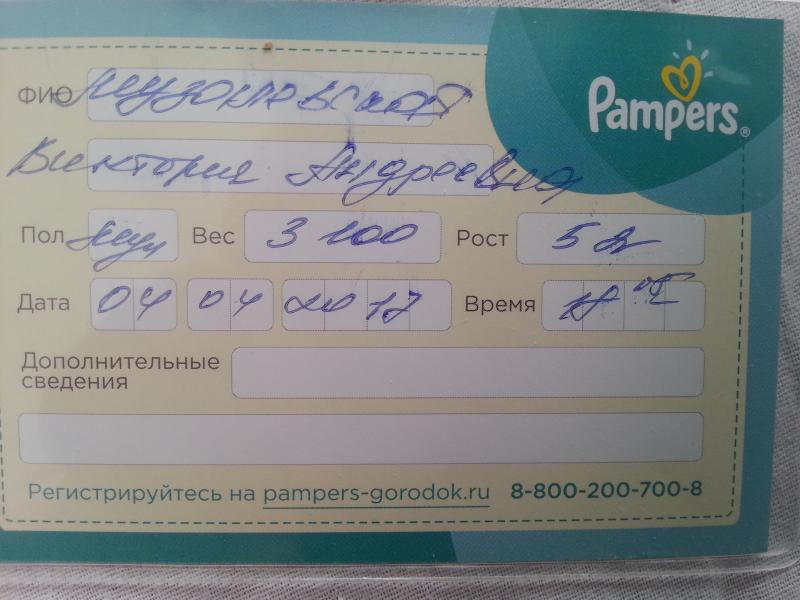 Pampers®
ФИО
Виктория Андреевна
Пол муж Вес 3 100 Рост 52
Дата 04 04 2017 Время 18
Дополнительные
сведения
Регистрируйтесь на pampers-gorodok.ru 8-800-200-700-8